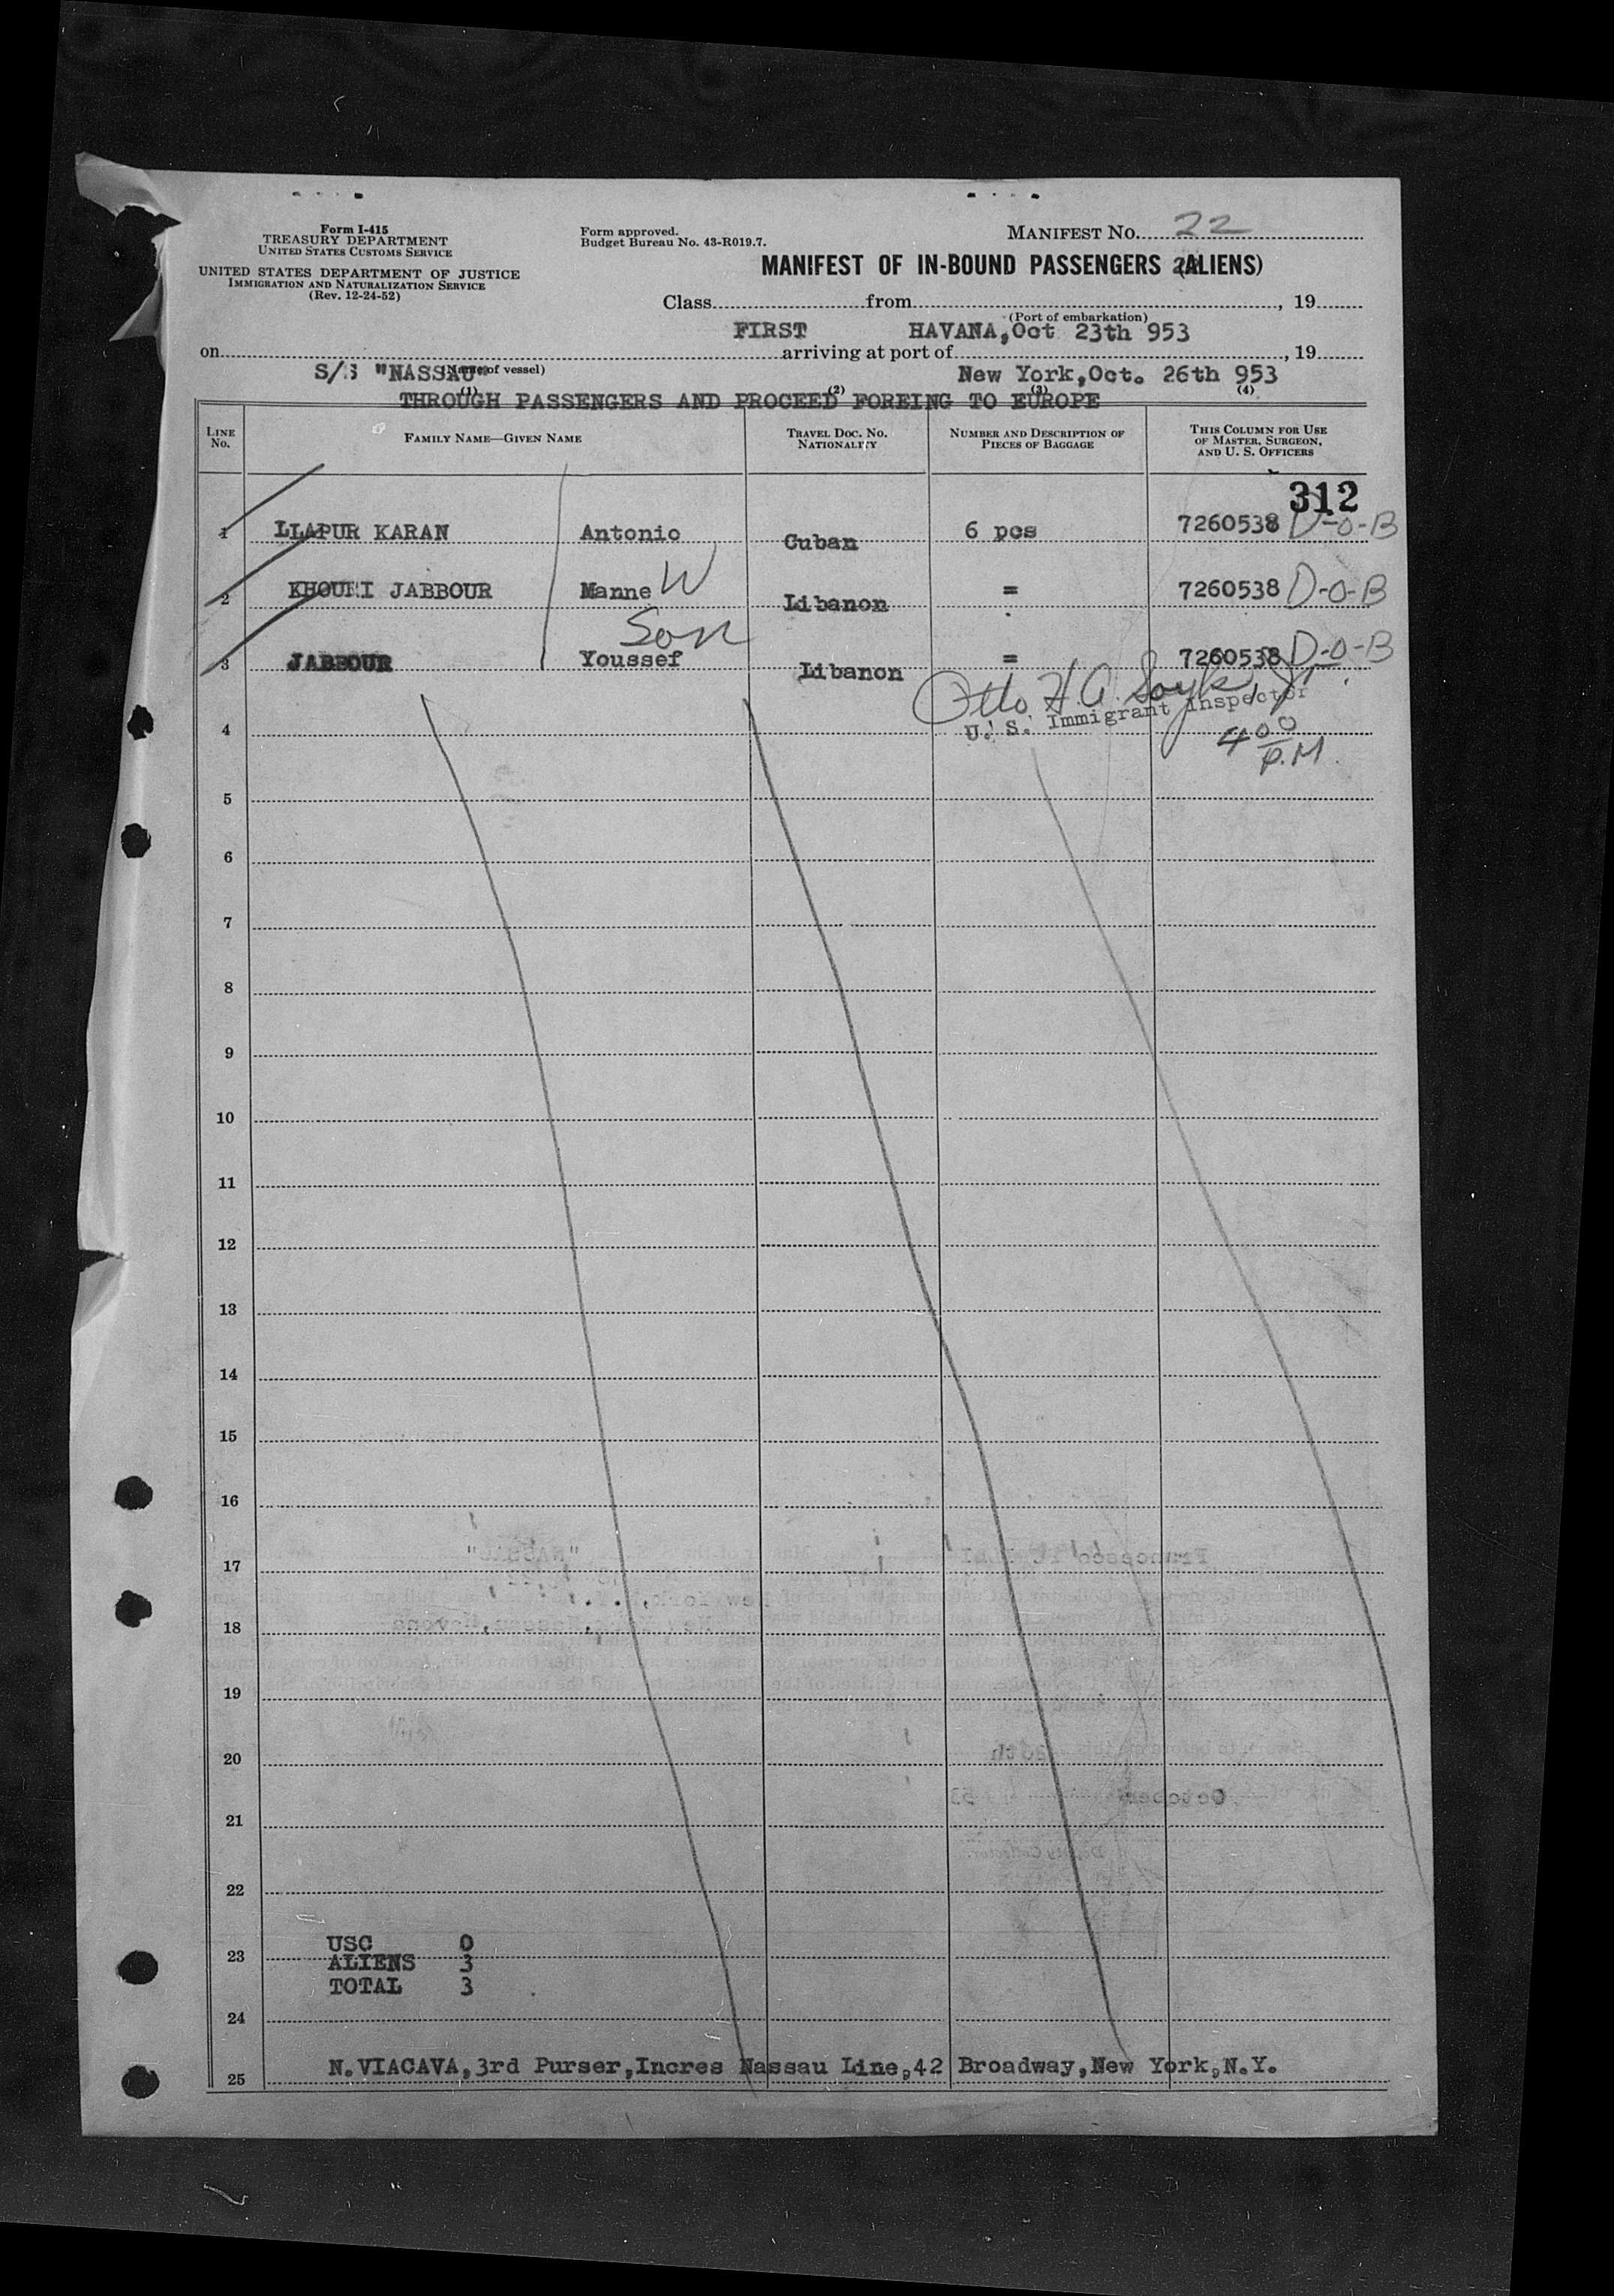 Form I-415
TREASURY DEPARTMENT
UNITED STATES CUSTOMS SERVICE
UNITED STATES DEPARTMENT OF JUSTICE
IMMIGRATION AND NATURALIZATION SERVICE
(Rev. 12-24-52)
Form approved.
Budget Bureau No. 43-R019.7.
MANIFEST NO. 22
MANIFEST OF IN-BOUND PASSENGERS (ALIENS)
Class from , 19
(Port of embarkation)
FIRST HAVANA,Oct 23th 953
on arriving at port of , 19
(Name of vessel)
S/S "NASSAU" New York,Oct. 26th 953
(1) (2) (3) (4)
THROUGH PASSENGERS AND PROCEED FOREING TO EUROPE
LINE NO. FAMILY NAME—GIVEN NAME TRAVEL DOC. NO. NATIONALITY NUMBER AND DESCRIPTION OF PIECES OF BAGGAGE THIS COLUMN FOR USE OF MASTER, SURGEON, AND U. S. OFFICERS
312
1 LLAPUR KARAN Antonio Cuban 6 pcs 7260538 D-O-B
2 KHOURI JABBOUR Manne W Libanon = 7260538 D-O-B
Son
3 JABBOUR Youssef Libanon = 7260538 D-O-B
Otto H. A.
U. S. Immigrant Inspector
4 4 00 P.M.
5
6
7
8
9
10
11
12
13
14
15
16
17
18
19
20
21
22
USC 0
23 ALIENS 3
TOTAL 3
24
25 N.VIACAVA,3rd Purser,Incres Nassau Line,42 Broadway,New York,N.Y.